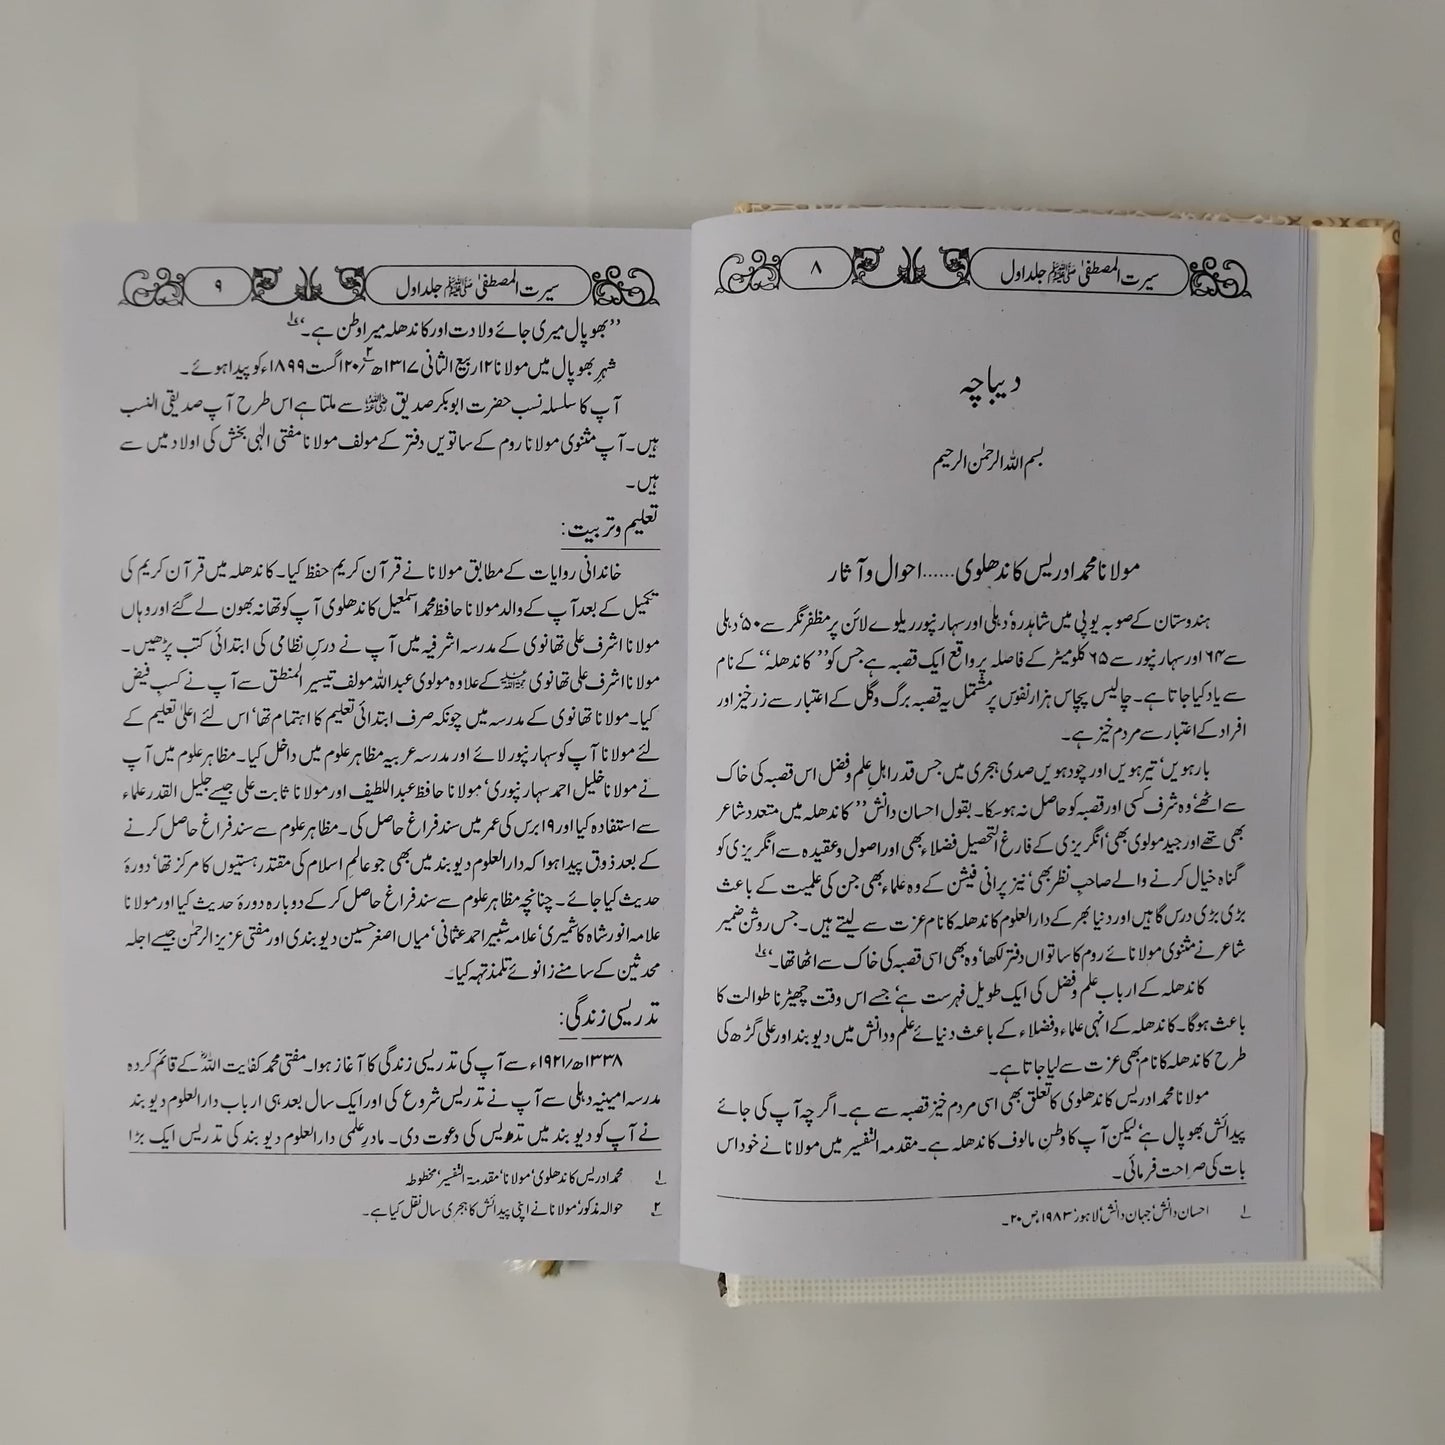 سیرت المصطفیٰ ﷺ جلد اول
۸
دیباچہ
بسم اللہ الرحمٰن الرحیم
مولانا محمد ادریس کاندھلوی......احوال و آثار
ہندوستان کے صوبہ یوپی میں شاہدرہ‘ دہلی اور سہارنپور ریلوے لائن پر مظفر نگر سے ۵۰‘ دہلی
سے ۶۴ اور سہارنپور سے ۶۵ کلومیٹر کے فاصلہ پر واقع ایک قصبہ ہے جس کو ’’کاندھلہ‘‘ کے نام
سے یاد کیا جاتا ہے۔ چالیس پچاس ہزار نفوس پر مشتمل یہ قصبہ برگ و گل کے اعتبار سے زرخیز اور
افراد کے اعتبار سے مردم خیز ہے۔
بارہویں‘ تیرہویں اور چودہویں صدی ہجری میں جس قدر اہلِ علم و فضل اس قصبہ کی خاک
سے اٹھے‘ وہ شرف کسی اور قصبہ کو حاصل نہ ہوسکا۔ بقول احسان دانش ’’کاندھلہ میں متعدد شاعر
بھی تھے اور جید مولوی بھی‘ انگریزی کے فارغ التحصیل فضلاء بھی اور اصول و عقیدہ سے انگریزی کو
گناہ خیال کرنے والے صاحب نظر بھی‘ نیز پرانی فیشن کے وہ علماء بھی جن کی علمیت کے باعث
بڑی بڑی درس گاہیں اور دنیا بھر کے دارالعلوم کاندھلہ کا نام عزت سے لیتے ہیں۔ جس روشن ضمیر
شاعر نے مثنوی مولانائے روم کا ساتواں دفتر لکھا‘ وہ بھی اسی قصبہ کی خاک سے اٹھا تھا۔‘‘ ۱
کاندھلہ کے ارباب علم و فضل کی ایک طویل فہرست ہے‘ جسے اس وقت چھیڑنا طوالت کا
باعث ہوگا۔ کاندھلہ کے انہی علماء و فضلاء کے باعث دنیائے علم و دانش میں دیوبند اور علی گڑھ کی
طرح کاندھلہ کا نام بھی عزت سے لیا جاتا ہے۔
مولانا محمد ادریس کاندھلوی کا تعلق بھی اسی مردم خیز قصبہ سے ہے۔ اگرچہ آپ کی جائے
پیدائش بھوپال ہے‘ لیکن آپ کا وطنِ مالوف کاندھلہ ہے۔ مقدمہ التفسیر میں مولانا نے خود اس
بات کی صراحت فرمائی۔
۱ احسان دانش‘ جہان دانش‘ لاہور‘ ۱۹۸۳‘ ص ۲۰۔
سیرت المصطفیٰ ﷺ جلد اول
۹
’’بھوپال میری جائے ولادت اور کاندھلہ میرا وطن ہے۔‘‘ ۱
شہر بھوپال میں مولانا ۱۲ ربیع الثانی ۱۳۱۷ھ ۲/۲۰ اگست ۱۸۹۹ء کو پیدا ہوئے۔
آپ کا سلسلہ نسب حضرت ابوبکر صدیق ؓ سے ملتا ہے اس طرح آپ صدیقی النسب
ہیں۔ آپ مثنوی مولانا روم کے ساتویں دفتر کے مولف مولانا مفتی الٰہی بخش کی اولاد میں سے
ہیں۔
تعلیم و تربیت:
خاندانی روایات کے مطابق مولانا نے قرآن کریم حفظ کیا۔ کاندھلہ میں قرآن کریم کی
تکمیل کے بعد آپ کے والد مولانا حافظ محمد اسمٰعیل کاندھلوی آپ کو تھانہ بھون لے گئے اور وہاں
مولانا اشرف علی تھانوی کے مدرسہ اشرفیہ میں آپ نے درسِ نظامی کی ابتدائی کتب پڑھیں۔
مولانا اشرف علی تھانوی ؒ کے علاوہ مولوی عبداللہ مولف تیسیر المنطق سے آپ نے کسبِ فیض
کیا۔ مولانا تھانوی کے مدرسہ میں چونکہ صرف ابتدائی تعلیم کا اہتمام تھا‘ اس لئے اعلیٰ تعلیم کے
لئے مولانا آپ کو سہارنپور لائے اور مدرسہ عربیہ مظاہر علوم میں داخل کیا۔ مظاہر علوم میں آپ
نے مولانا خلیل احمد سہارنپوری‘ مولانا حافظ عبداللطیف اور مولانا ثابت علی جیسے جلیل القدر علماء
سے استفادہ کیا اور ۱۹ برس کی عمر میں سندِ فراغ حاصل کی۔ مظاہر علوم سے سندِ فراغ حاصل کرنے
کے بعد ذوق پیدا ہوا کہ دارالعلوم دیوبند میں بھی جو عالمِ اسلام کی مقتدر ہستیوں کا مرکز تھا‘ دورۂ
حدیث کیا جائے۔ چنانچہ مظاہر علوم سے سندِ فراغ حاصل کرکے دوبارہ دورۂ حدیث کیا اور مولانا
علامہ انور شاہ کاشمیری‘ علامہ شبیر احمد عثمانی‘ میاں اصغر حسین دیوبندی اور مفتی عزیز الرحمٰن جیسے اجلہ
محدثین کے سامنے زانوئے تلمذ تہہ کیا۔
تدریسی زندگی:
۱۳۳۸ھ/۱۹۲۱ء سے آپ کی تدریسی زندگی کا آغاز ہوا۔ مفتی محمد کفایت اللہؒ کے قائم کردہ
مدرسہ امینیہ دہلی سے آپ نے تدریس شروع کی اور ایک سال بعد ہی ارباب دارالعلوم دیوبند
نے آپ کو دیوبند میں تدھیس کی دعوت دی۔ مادرِ علمی دارالعلوم دیوبند کی تدریس ایک بڑا
۱ محمد ادریس کاندھلوی‘ مولانا‘ مقدمۃ التفسیر‘ مخطوطہ
۲ حوالہ مذکور‘ مولانا نے اپنی پیدائش کا ہجری سال نقل کیا ہے۔